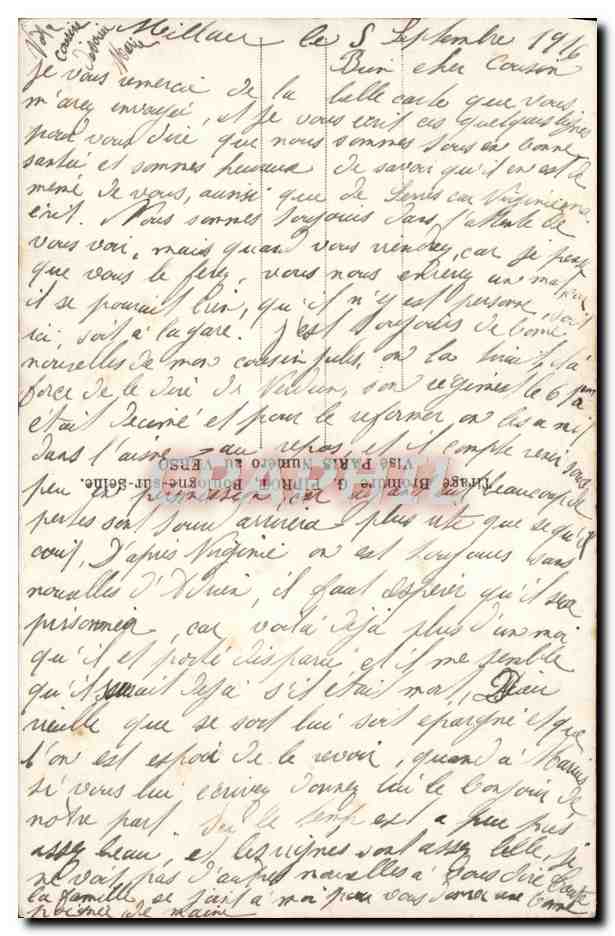 Millau le 5 Septembre 1916
Bien cher Cousin
Je vous remercie de la belle carte que vous
m'avez envoyé, et je vous écrit ces quelques lignes
pour vous dire que nous sommes tous en bonne
santée et sommes heureux de savoir qu'il en est de
même de vous, aussi que de car Virginie
écrit. Nous sommes toujours dans l'attente de
vous voir, mais quand vous viendrez, car je pense
que vous le ferez, vous nous enverez un mot
il se pourait bien, qu'il n'y est personne, soit
ici, soit à la gare. J'est toujours de bonne
nouvelles de mon cousin jules, on la
force de le de Verdun, son regiment le 6
était decimé et pour le reformer on les a mit
dans l'aisne au repos, et il compte venir sous
peu en permission, car ayant eu beaucoup de
pertes sont tour arrivera plus vite que se qu'il
Tirage Bromure G. PIPROT, Boulogne-sur-Seine.
Visé PARIS Numéro au VERSO
CARTAPHIL
D'après Virginie on est toujours sans
nouvelles d'Adrien, il faut esperer qu'il sera
prisonnier, car voilà déjà plus d'un moi
qu'il et porté disparu et il me semble
qu'il déjà s'il était mort, Dieu
vieille que se sort lui soit epargné et que
l'on est espoir de le revoir, quand à Marius
si vous lui écrivez donnez lui le bonjour de
notre part. le temps est a peu près
assez beau, et les vignes sont assez belle, je
ne voit pas d'autres nouvelles à vous dire toute
la famille se joint à moi pour vous donner une bonne
poignée de maine
Votre
cousine
Marie